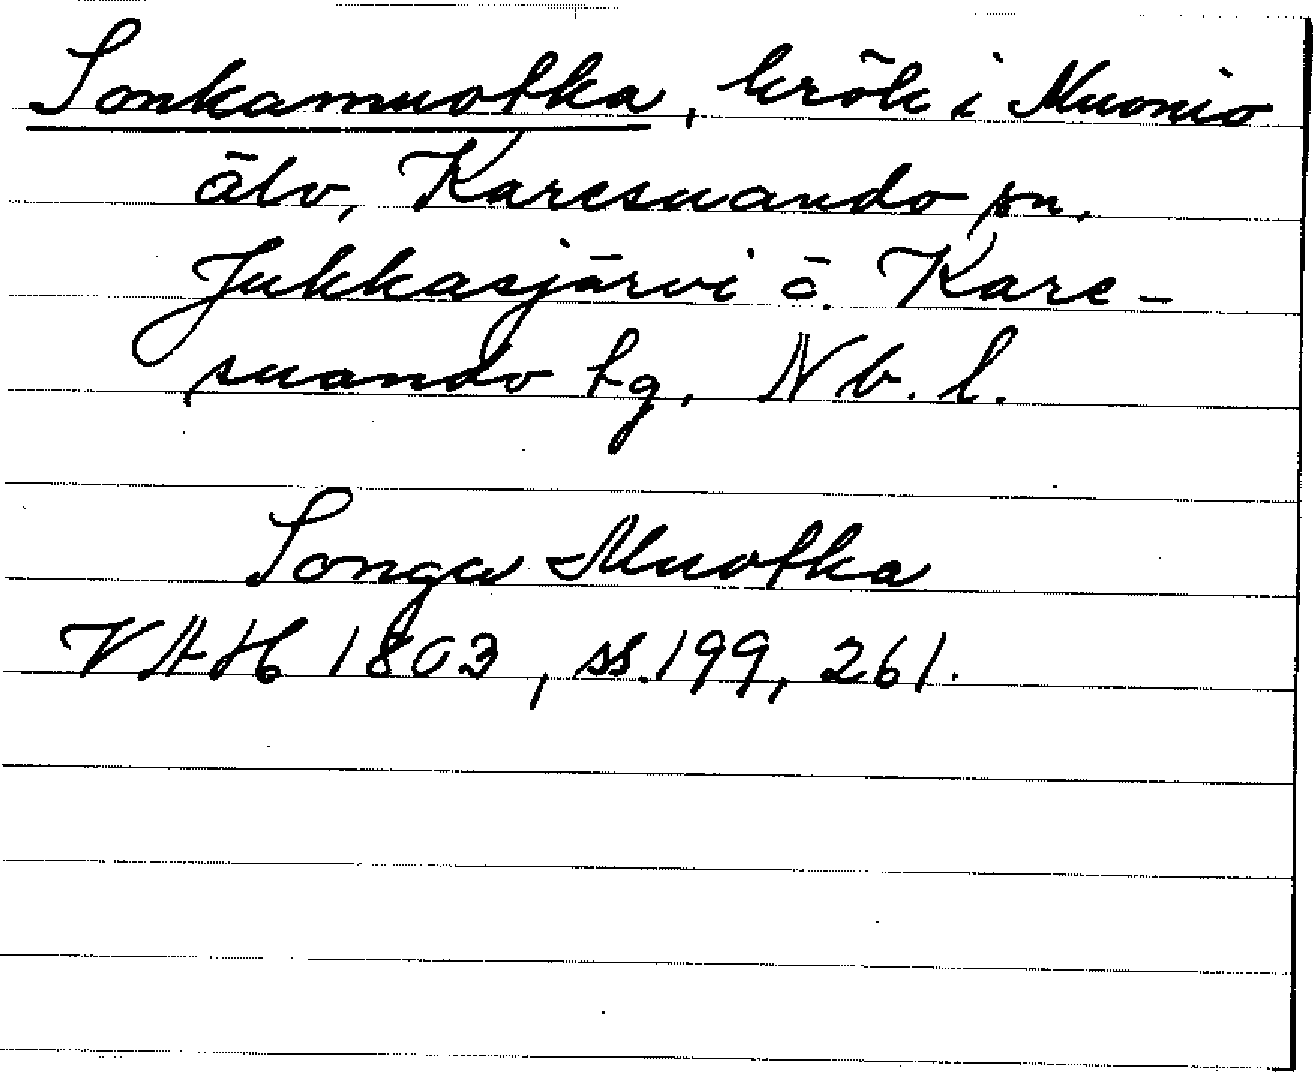 Sonkamuotka, krök i Muonio
älv, Karesuando sn,
Jukkasjärvi o. Kare-
suando tg, Nb. l.
Songa-Muotka
VAH 1803, ss. 199, 261.